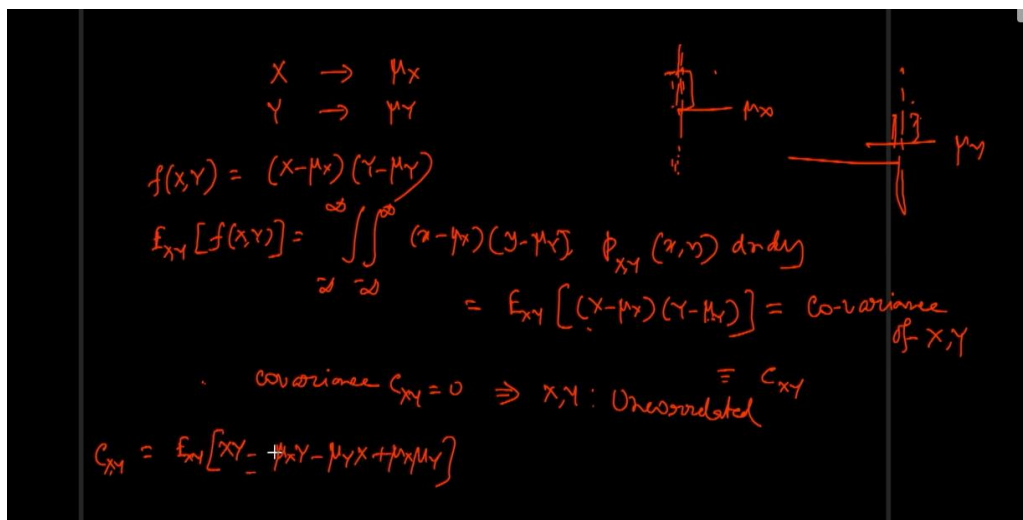 X → μX
Y → μY
μx
μy
f(X,Y) = (X-μX)(Y-μY)
EXY[f(X,Y)] = ∫∞-∞ ∫∞-∞ (x-μX)(y-μY) pXY(x,y) dxdy
= EXY[(X-μX)(Y-μY)] = Co-variance
of X,Y
≡ CXY
covariance CXY = 0 ⇒ X,Y : Uncorrelated
CXY = EXY[XY - μXY - μYX + μXμY]